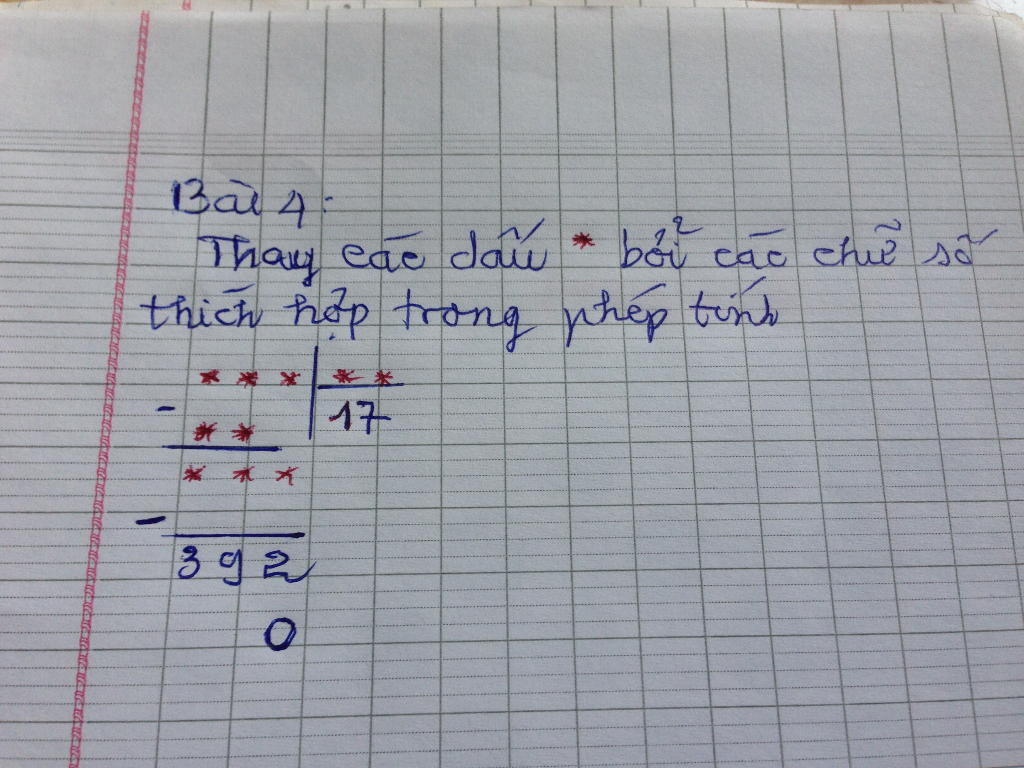 Bài 4:
Thay các dấu * bởi các chữ số
thích hợp trong phép tính
* * * | * *
- 17
* *
* * *
-
392
0